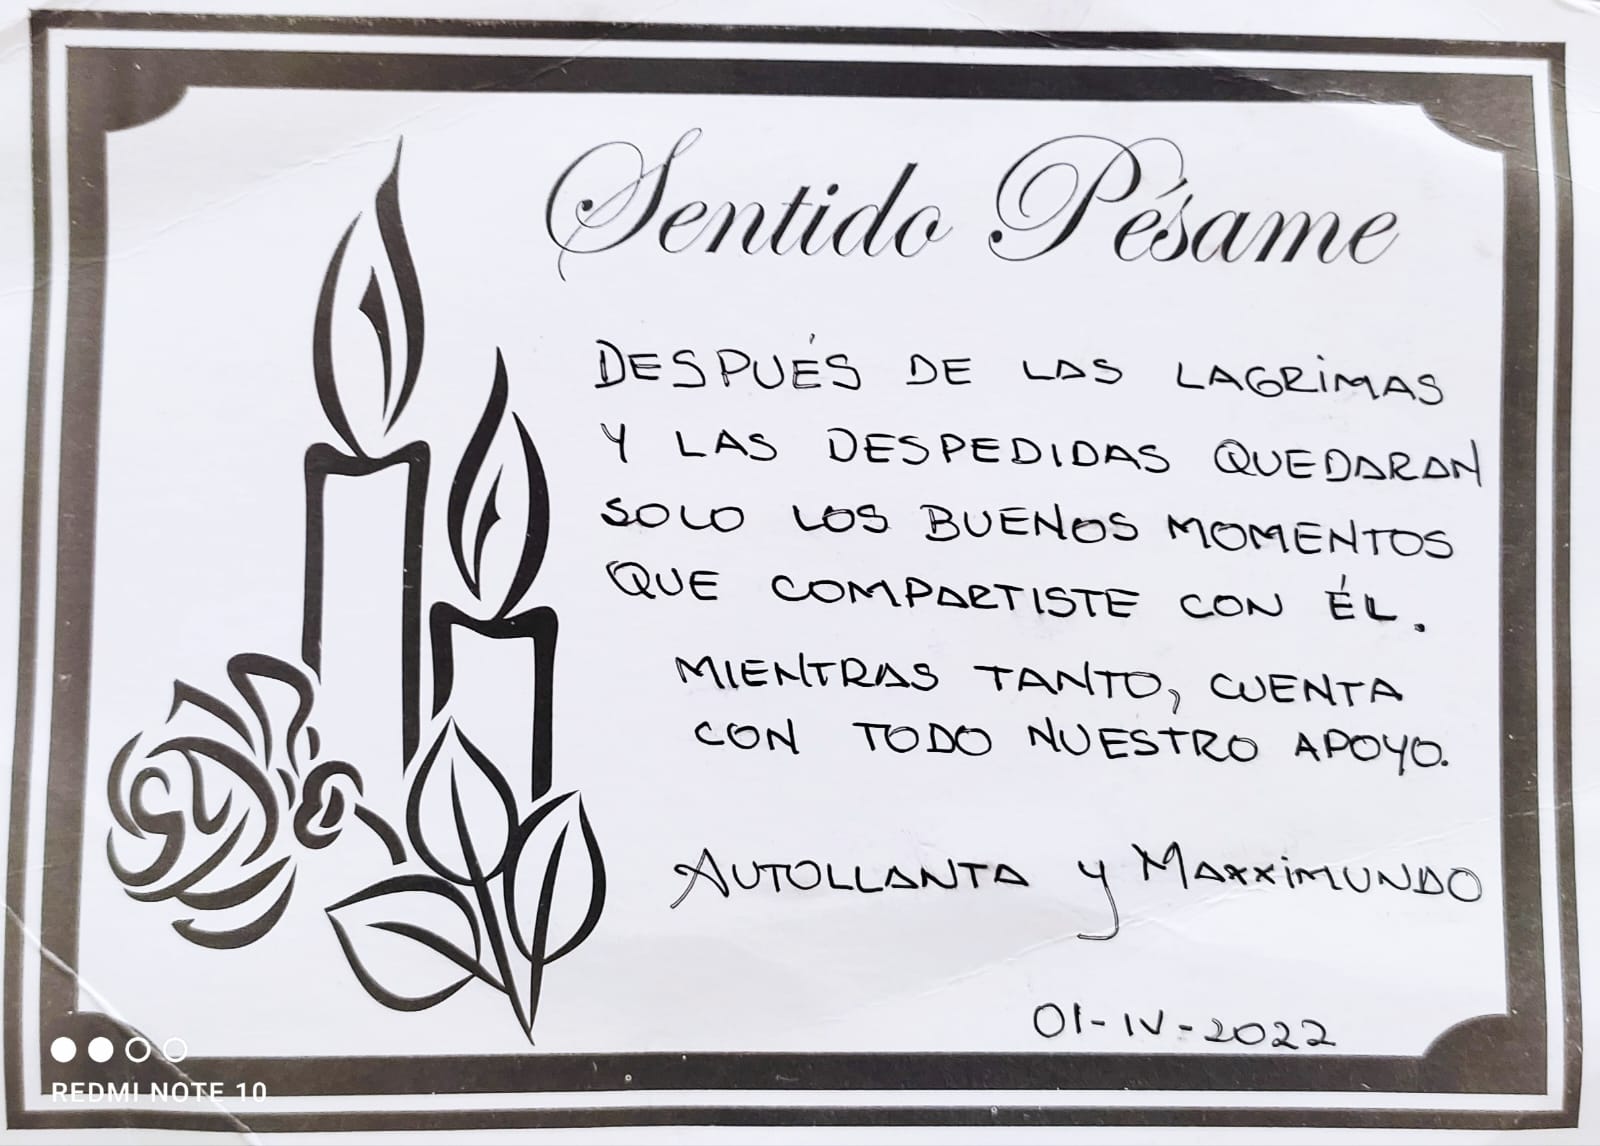 Sentido Pésame
DESPUÉS DE LAS LAGRIMAS
Y LAS DESPEDIDAS QUEDARAN
SOLO LOS BUENOS MOMENTOS
QUE COMPARTISTE CON ÉL.
MIENTRAS TANTO, CUENTA
CON TODO NUESTRO APOYO.
AUTOLLANTA Y MAXXIMUNDO
01-IV-2022
REDMI NOTE 10